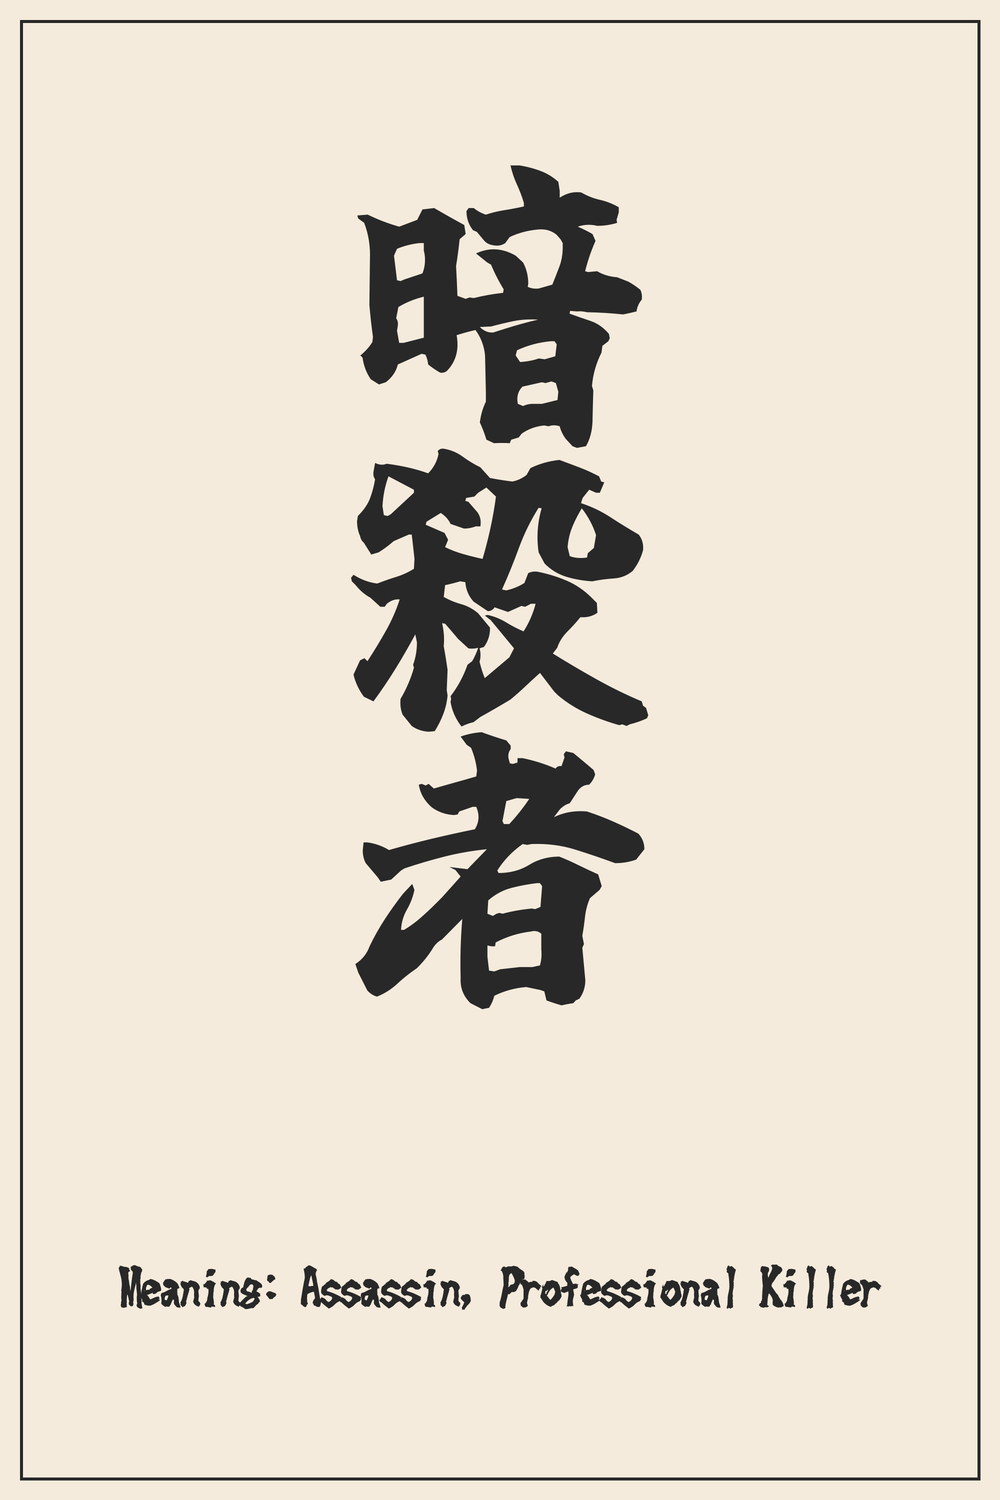 暗殺者
Meaning: Assassin, Professional Killer